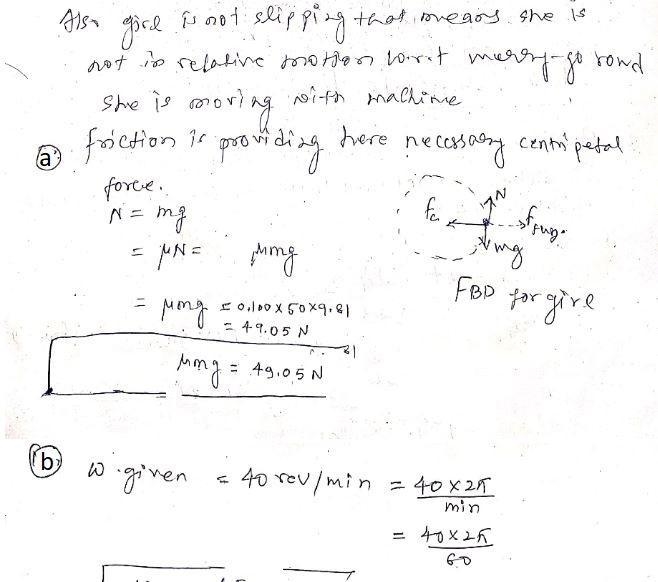 Also girl is not slipping that means she is
not in relative motion w.r.t merry-go round
she is moving with machine
(a) friction is providing here necessary centripetal
force.
N = mg
= μN = μmg
= μmg = 0.100 x 50 x 9.81
= 49.05 N
μmg = 49.05 N
N
mg
FBD for girl
(b) ω given = 40 rev/min = 40 x 2π / min
= 40 x 2π / 60